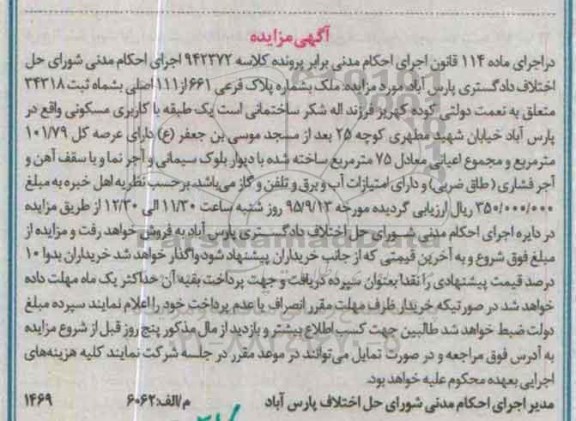 آگهی مزایده
دراجرای ماده ۱۱۴ قانون اجرای احکام مدنی برابر پرونده کلاسه ۹۴۲۳۷۲ اجرای احکام مدنی شورای حل
اختلاف دادگستری پارس آباد مورد مزایده: ملک بشماره پلاک فرعی ۶۶۱ از ۱۱۱ اصلی بشماه ثبت ۳۴۳۱۸
متعلق به نعمت دولتی کوده کهریز فرزند اله شکر ساختمانی است یک طبقه با کاربری مسکونی واقع در
پارس آباد خیابان شهید مطهری کوچه ۲۵ بعد از مسجد موسی بن جعفر (ع) دارای عرصه کل ۱۰۱/۷۹
مترمربع و مجموع اعیانی معادل ۷۵ مترمربع ساخته شده با دیوار بلوک سیمانی و آجر نما و با سقف آهن و
آجر فشاری (طاق ضربی) و دارای امتیازات آب و برق و تلفن و گاز می‌باشد، برحسب نظریه اهل خبره به مبلغ
۳۵۰/۰۰۰/۰۰۰ ریال ارزیابی گردیده مورخه ۹۵/۹/۱۳ روز شنبه ساعت ۱۱/۳۰ الی ۱۲/۳۰ از طریق مزایده
در دایره اجرای احکام مدنی شورای حل اختلاف دادگستری پارس آباد به فروش خواهد رفت و مزایده از
مبلغ فوق شروع و به آخرین قیمتی که از جانب خریداران پیشنهاد شود واگذار خواهد شد خریداران بدوا ۱۰
درصد قیمت پیشنهادی را نقدا بعنوان سپرده دریافت و جهت پرداخت بقیه آن حداکثر یک ماه مهلت داده
خواهد شد در صورتیکه خریدار ظرف مهلت مقرر انصراف یا عدم پرداخت خود را اعلام نمایند سپرده مبلغ
دولت ضبط خواهد شد طالبین جهت کسب اطلاع بیشتر و بازدید از مال مذکور پنج روز قبل از شروع مزایده
به آدرس فوق مراجعه و در صورت تمایل می‌توانند در موعد مقرر در جلسه شرکت نمایند کلیه هزینه‌های
اجرایی بعهده محکوم علیه خواهد بود.
مدیر اجرای احکام مدنی شورای حل اختلاف پارس آباد م/الف: ۶۰۶۲ ۱۴۶۹